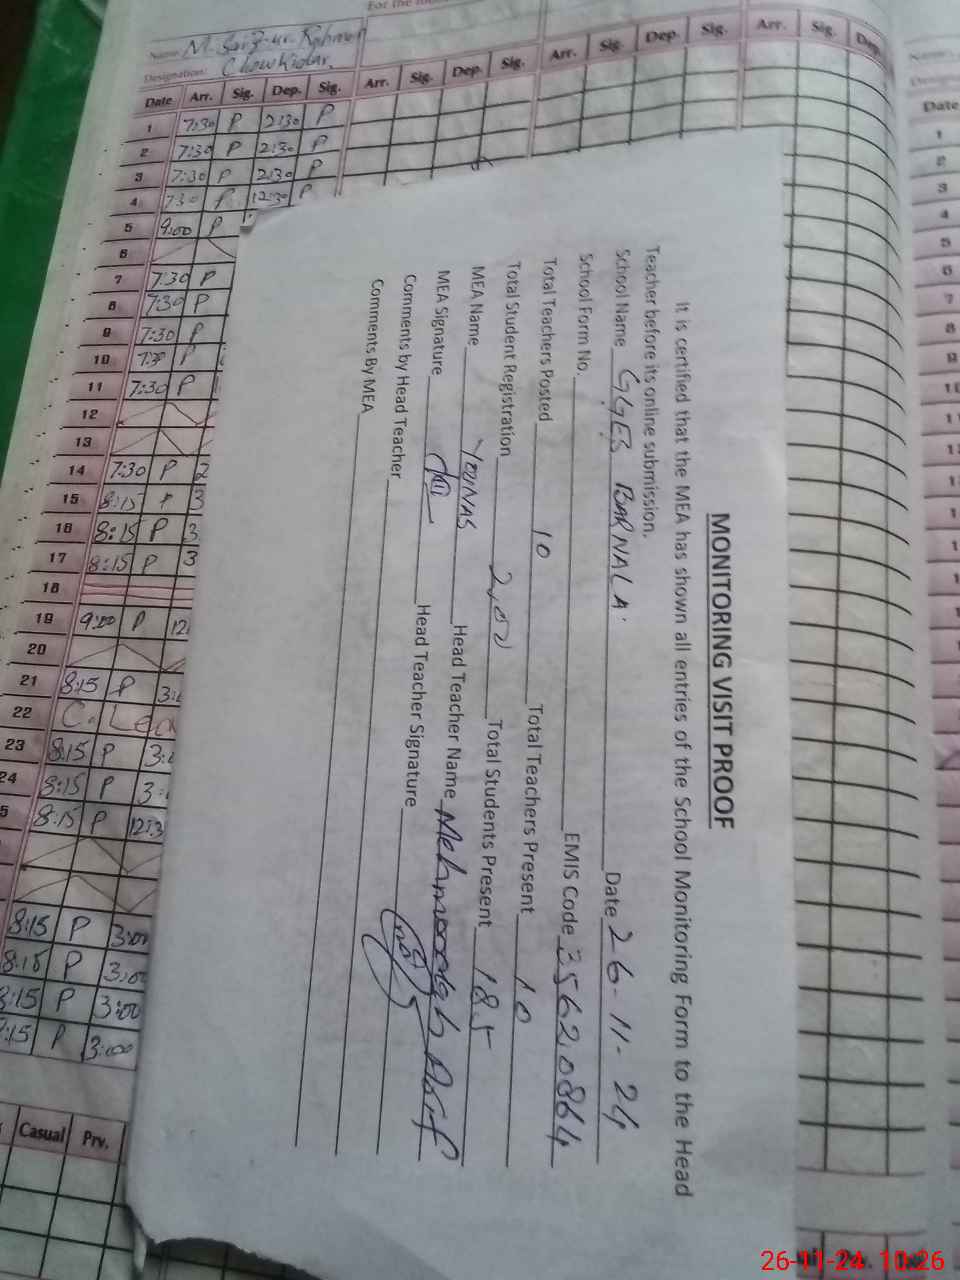 For the
Name M. Saiz-ur-Rahman
Designation: Chowkidar.
Arr. Sig. Dep. Sig. Arr. Sig. Dep. Sig. Arr. Sig. Dep.
Date Arr. Sig. Dep. Sig.
1 7:30 P 2:30 P
2 7:30 P 2:30 P
3 7:30 P 2:30 P
4 7:30 P 12:30 P
5 9:00 P
6
7 7:30 P
8 7:30 P
9 7:30 P
10 7:30 P
11 7:30 P
12
13
14 7:30 P 2
15 8:15 P 3
16 8:15 P 3
17 8:15 P 3
18
19 9:00 P 12
20
21 8:15 P 3:
22 C. Lea
23 8:15 P 3:
24 8:15 P 3:
5 8:15 P 12:3
8:15 P 3:00
8:15 P 3:00
8:15 P 3:00
:15 P 3:00
Casual Prv.
MONITORING VISIT PROOF
It is certified that the MEA has shown all entries of the School Monitoring Form to the Head
Teacher before its online submission.
School Name GGES BARNALA. Date 26-11-24
School Form No. EMIS Code 35620864
Total Teachers Posted 10 Total Teachers Present 10
Total Student Registration 202 Total Students Present 185
MEA Name YOUNAS Head Teacher Name
MEA Signature Head Teacher Signature
Comments by Head Teacher
Comments By MEA
Date
1
2
3
4
5
6
7
8
9
10
26-11-24 10:26